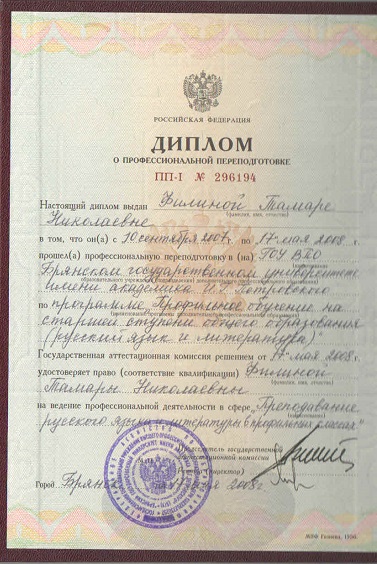 РОССИЙСКАЯ ФЕДЕРАЦИЯ
ДИПЛОМ
О ПРОФЕССИОНАЛЬНОЙ ПЕРЕПОДГОТОВКЕ
ПП-I № 296194
Настоящий диплом выдан Билиной Тамаре
(фамилия, имя, отчество)
Николаевне
в том, что он(а) с 10 сентября 2007 г. по 17 мая 2008 г.
прошел(а) профессиональную переподготовку в (на) ГОУ ВПО
Брянском государственном университете
имени академика И.Г. Петровского
по программе „Профильное обучение на
старшей ступени общего образования
(русский язык и литература)"
Государственная аттестационная комиссия решением от 17 мая 2008 г.
удостоверяет право (соответствие квалификации) Билиной
(фамилия, имя, отчество)
Тамары Николаевны
на ведение профессиональной деятельности в сфере „Преподавание
русского языка и литературы в профильных классах"
Председатель государственной
аттестационной комиссии
(директор)
Город Брянск 2008 г.